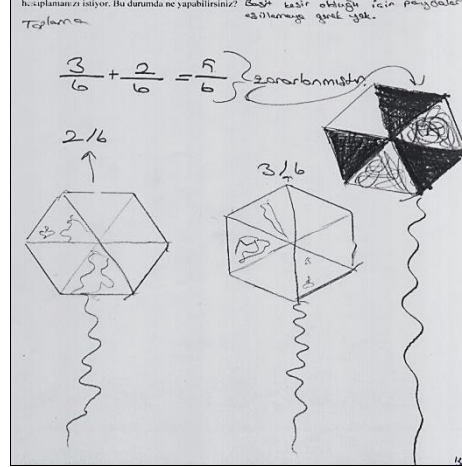 hesaplamanızı istiyor. Bu durumda ne yapabilirsiniz? Basit kesir olduğu için paydaları
eşitlemeye gerek yok.
Toplama
3/6 + 2/6 = 5/6 } zararlanmıştır.
2/6
3/6